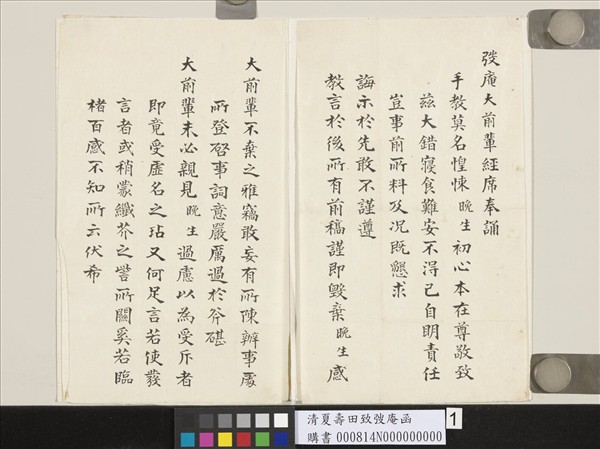 弢庵大前輩經席奉誦
手教莫名惶悚晚生初心本在尊敬致
茲大錯寢食難安不得已自明責任
豈事前所料及况既懇求
誨示於先敢不謹遵
教言於後所有前稿謹即毀棄晚生感
大前輩不棄之雅竊敢妄有所陳辦事處
所登啓事詞意嚴厲過於斧碪
大前輩未必親見晚生過慮以為受斥者
即竟受虛名之玷又何足言若使發
言者或稍蒙纖芥之訾所關奚若臨
楮百感不知所云伏希
清夏壽田致弢庵函
購書 000814N000000000
1